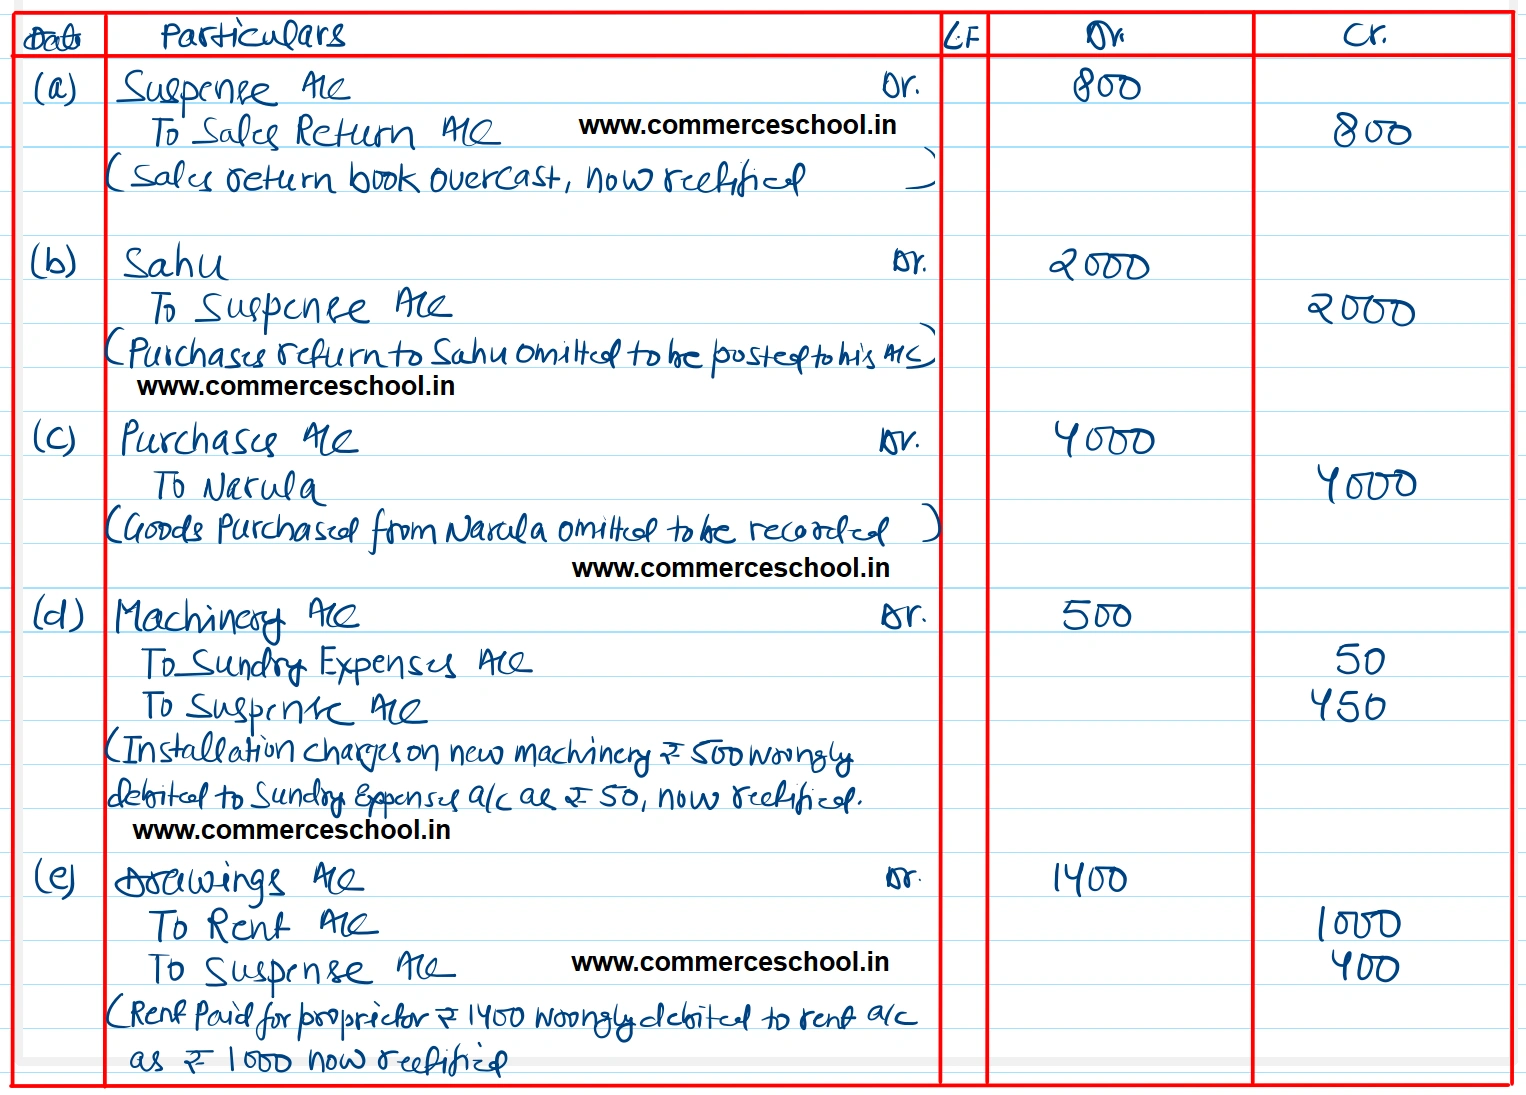 Date Particulars L.F Dr. Cr.
(a) Suspense A/C Dr. 800
To Sales Return A/C www.commerceschool.in 800
(Sales return book overcast, now rectified)
(b) Sahu Dr. 2000
To Suspense A/C 2000
(Purchases return to Sahu omitted to be posted to his A/C)
www.commerceschool.in
(c) Purchases A/C Dr. 4000
To Narula 4000
(Goods Purchased from Narula omitted to be recorded)
www.commerceschool.in
(d) Machinery A/C Dr. 500
To Sundry Expenses A/C 50
To Suspense A/C 450
(Installation charges on new machinery ₹ 500 wrongly
debited to Sundry Expenses a/c as ₹ 50, now rectified.
www.commerceschool.in
(e) Drawings A/C Dr. 1400
To Rent A/C 1000
To Suspense A/C www.commerceschool.in 400
(Rent Paid for proprietor ₹ 1400 wrongly debited to rent a/c
as ₹ 1000 now rectified